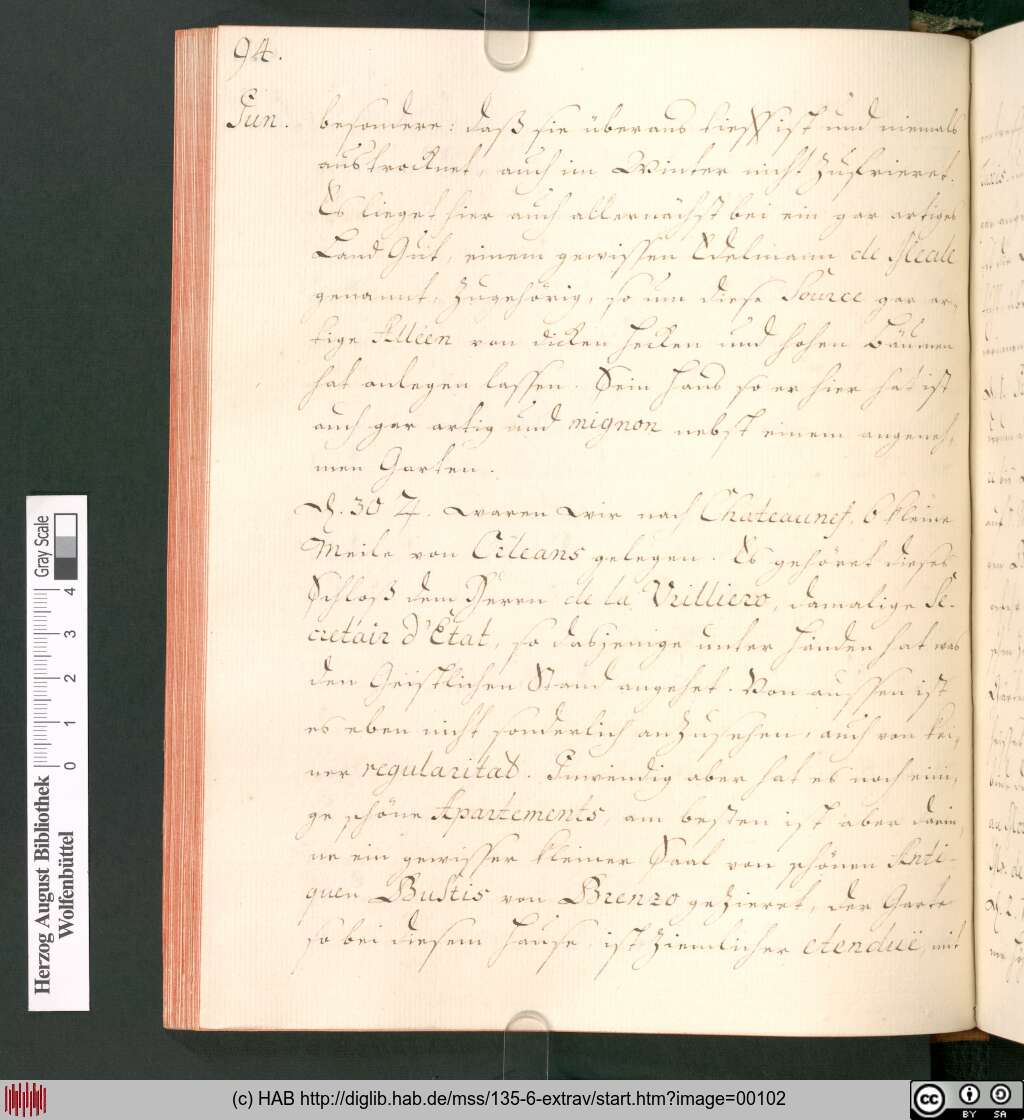 94.
Jun. besondere: daß sie überaus tieff ist und niemals
austrocknet, auch im Winter nicht zufrieret.
Es lieget hier auch allernächst bei ein gar artiges
Land Gut, einem gewissen Edelmann de
genannt, zugehörig, so um diese Source gar ar-
tige Alléen von dicken Hecken und hohen Bäumen
hat anlegen lassen. Sein Haus so er hier hat ist
auch gar artig und mignon nebst einem angeneh-
men Garten.
D. 30 ♃. waren wir nach Chateaunef. 6 kleine
Meile von Orleans gelegen. Es gehöret dieses
Schloß dem Herrn de la Vrilliero, damalige Se-
cretair d'Etat, so dasjenige unter Händen hat was
den Geistlichen Stand angehet. Von aussen ist
es eben nicht sonderlich anzusehen, auch von kei-
ner regularitad. Inwendig aber hat es noch eini-
ge schöne Apartements, am besten ist aber darin-
ne ein gewisser kleiner Saal von schönen Anti-
quen Bustis von Brenzo gezieret, der Garte
so bei diesem Hause, ist ziemlicher etenduë, mit
Herzog August Bibliothek
Wolfenbüttel
Gray Scale
0 1 2 3 4
(c) HAB http://diglib.hab.de/mss/135-6-extrav/start.htm?image=00102
cc BY SA